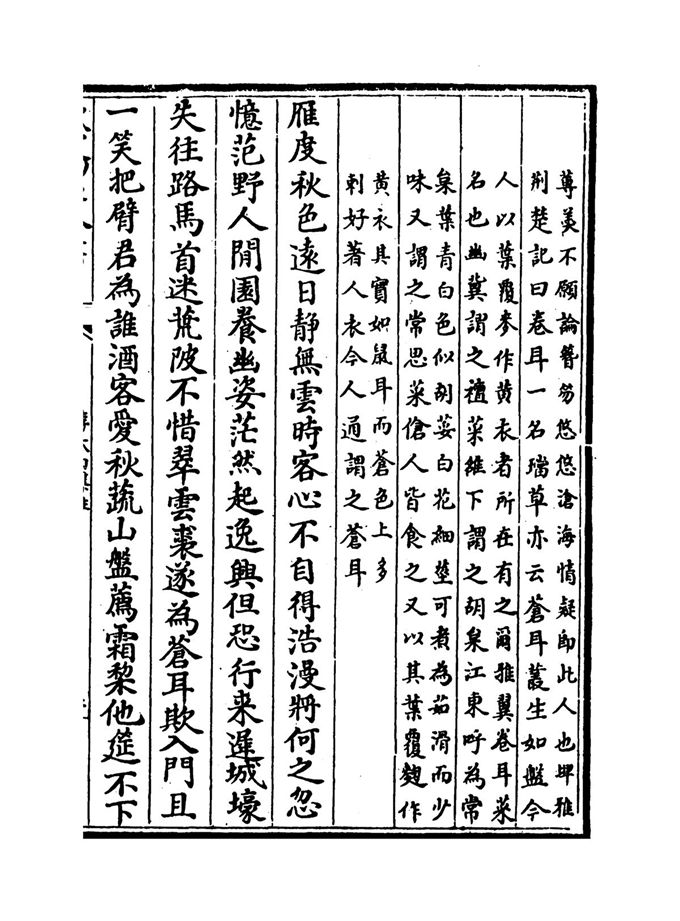 蓴羮不願論簪笏悠悠滄海情疑即此人也埤雅
荆楚記曰卷耳一名璫草亦云蒼耳叢生如盤今
人以葉覆麥作黄衣者所在有之爾雅翼卷耳菜
名也幽冀謂之襢菜雒下謂之胡枲江東呼為常
枲葉青白色似胡荽白花細莖可煮為茹滑而少
味又謂之常思菜傖人皆食之又以其葉覆麴作
黄衣其實如鼠耳而蒼色上多
刺好著人衣今人通謂之蒼耳
雁度秋色遠日静無雲時客心不自得浩漫將何之忽
憶范野人閒園養幽姿茫然起逸興但恐行来遲城壕
失往路馬首迷荒陂不惜翠雲裘遂為蒼耳欺入門且
一笑把臂君為誰酒客愛秋蔬山盤薦霜棃他筵不下